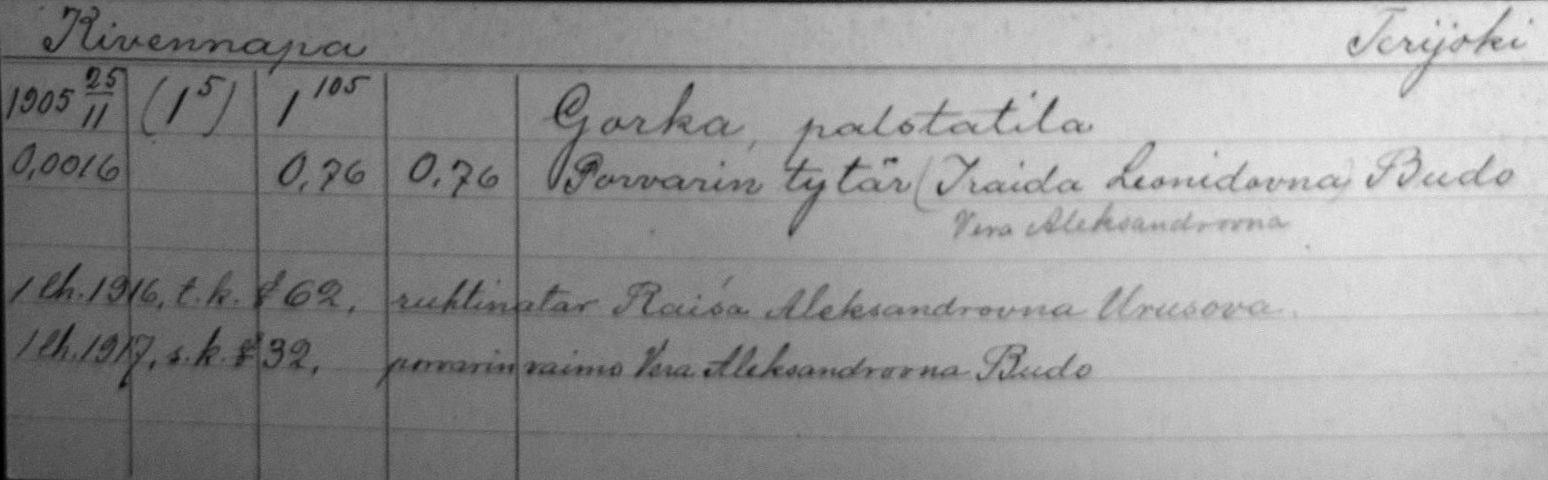 Kivennapa Terijoki
1905 25/11 (1⁵) 1¹⁰⁵ Gorka, palstatila
0,0016 0,76 0,76 Porvarin tytär (Iraida Leonidovna) Budo
Vera Aleksandrovna
1 lh. 1916, t.k. § 62, ruhtinatar Raisa Aleksandrovna Urusova.
1 lh. 1917, s.k. § 32, porvarin vaimo Vera Aleksandrovna Budo